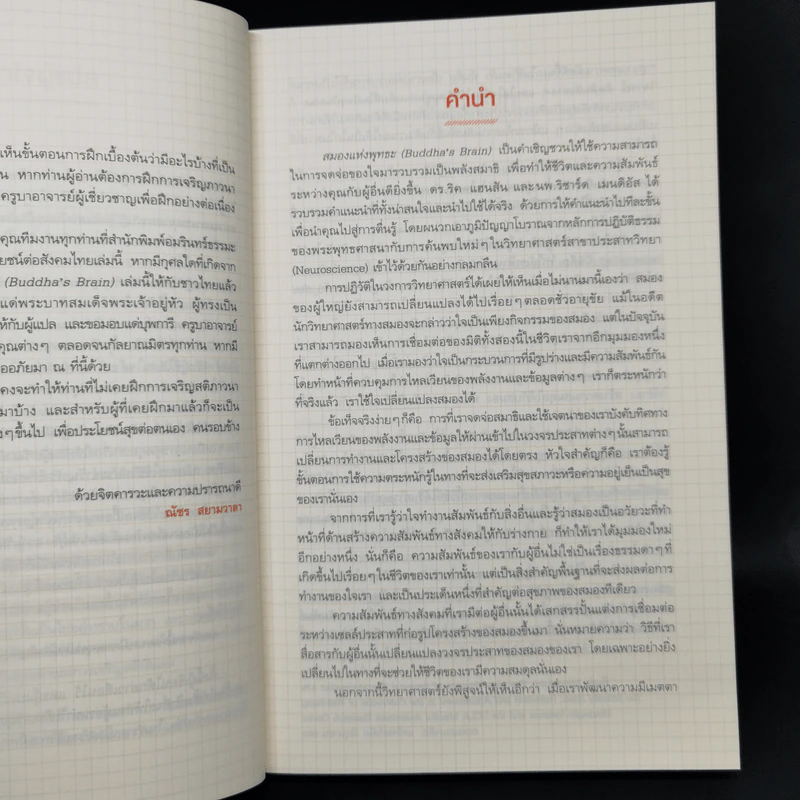 เห็นขั้นตอนการฝึกเบื้องต้นว่ามีอะไรบ้างที่เป็น
น หากท่านผู้อ่านต้องการฝึกการเจริญภาวนา
ครูบาอาจารย์ผู้เชี่ยวชาญเพื่อฝึกอย่างต่อเนื่อง
คุณทีมงานทุกท่านที่สำนักพิมพ์อมรินทร์ธรรมะ
โยชน์ต่อสังคมไทยเล่มนี้ หากมีกุศลใดที่เกิดจาก
(Buddha's Brain) เล่มนี้ให้กับชาวไทยแล้ว
แด่พระบาทสมเด็จพระเจ้าอยู่หัว ผู้ทรงเป็น
ให้กับผู้แปล และขอมอบแด่บุพการี ครูบาอาจารย์
คุณต่างๆ ตลอดจนกัลยาณมิตรทุกท่าน หากมี
ออภัยมา ณ ที่นี้ด้วย
คงจะทำให้ท่านที่ไม่เคยฝึกการเจริญสติภาวนา
มาบ้าง และสำหรับผู้ที่เคยฝึกมาแล้วก็จะเป็น
งๆขึ้นไป เพื่อประโยชน์สุขต่อตนเอง คนรอบข้าง
ด้วยจิตคารวะและความปรารถนาดี
ณัชร สยามวาลา
คำนำ
สมองแห่งพุทธะ (Buddha's Brain) เป็นคำเชิญชวนให้ใช้ความสามารถ
ในการจดจ่อของใจมารวบรวมเป็นพลังสมาธิ เพื่อทำให้ชีวิตและความสัมพันธ์
ระหว่างคุณกับผู้อื่นดียิ่งขึ้น ดร.ริค แฮนสัน และนพ.ริชาร์ด เมนดิอัส ได้
รวบรวมคำแนะนำที่ทั้งน่าสนใจและนำไปใช้ได้จริง ด้วยการให้คำแนะนำไปทีละขั้น
เพื่อนำคุณไปสู่การตื่นรู้ โดยผนวกเอาภูมิปัญญาโบราณจากหลักการปฏิบัติธรรม
ของพระพุทธศาสนากับการค้นพบใหม่ๆในวิทยาศาสตร์สาขาประสาทวิทยา
(Neuroscience) เข้าไว้ด้วยกันอย่างกลมกลืน
การปฏิวัติในวงการวิทยาศาสตร์ได้เผยให้เห็นเมื่อไม่นานมานี้เองว่า สมอง
ของผู้ใหญ่ยังสามารถเปลี่ยนแปลงได้ไปเรื่อยๆตลอดชั่วอายุขัย แม้ในอดีต
นักวิทยาศาสตร์ทางสมองจะกล่าวว่าใจเป็นเพียงกิจกรรมของสมอง แต่ในปัจจุบัน
เราสามารถมองเห็นการเชื่อมต่อของมิติทั้งสองนี้ในชีวิตเราจากอีกมุมมองหนึ่ง
ที่แตกต่างออกไป เมื่อเรามองว่าใจเป็นกระบวนการที่มีรูปร่างและมีความสัมพันธ์กัน
โดยทำหน้าที่ควบคุมการไหลเวียนของพลังงานและข้อมูลต่างๆ เราก็ตระหนักว่า
ที่จริงแล้ว เราใช้ใจเปลี่ยนแปลงสมองได้
ข้อเท็จจริงง่ายๆก็คือ การที่เราจดจ่อสมาธิและใช้เจตนาของเราบังคับทิศทาง
การไหลเวียนของพลังงานและข้อมูลให้ผ่านเข้าไปในวงจรประสาทต่างๆนั้นสามารถ
เปลี่ยนการทำงานและโครงสร้างของสมองได้โดยตรง หัวใจสำคัญก็คือ เราต้องรู้
ขั้นตอนการใช้ความตระหนักรู้ในทางที่จะส่งเสริมสุขสภาวะหรือความอยู่เย็นเป็นสุข
ของเรานั่นเอง
จากการที่เรารู้ว่าใจทำงานสัมพันธ์กับสิ่งอื่นและรู้ว่าสมองเป็นอวัยวะที่ทำ
หน้าที่ด้านสร้างความสัมพันธ์ทางสังคมให้กับร่างกาย ก็ทำให้เราได้มุมมองใหม่
อีกอย่างหนึ่ง นั่นก็คือ ความสัมพันธ์ของเรากับผู้อื่นไม่ใช่เป็นเรื่องธรรมดาๆที่
เกิดขึ้นไปเรื่อยๆในชีวิตของเราเท่านั้น แต่เป็นสิ่งสำคัญพื้นฐานที่จะส่งผลต่อการ
ทำงานของใจเรา และเป็นประเด็นหนึ่งที่สำคัญต่อสุขภาพของสมองทีเดียว
ความสัมพันธ์ทางสังคมที่เรามีต่อผู้อื่นนั้นได้เสกสรรปั้นแต่งการเชื่อมต่อ
ระหว่างเซลล์ประสาทที่ก่อรูปโครงสร้างของสมองขึ้นมา นั่นหมายความว่า วิธีที่เรา
สื่อสารกับผู้อื่นนั้นเปลี่ยนแปลงวงจรประสาทของสมองของเรา โดยเฉพาะอย่างยิ่ง
เปลี่ยนไปในทางที่จะช่วยให้ชีวิตของเรามีความสมดุลนั่นเอง
นอกจากนี้วิทยาศาสตร์ยังพิสูจน์ให้เห็นอีกว่า เมื่อเราพัฒนาความมีเมตตา